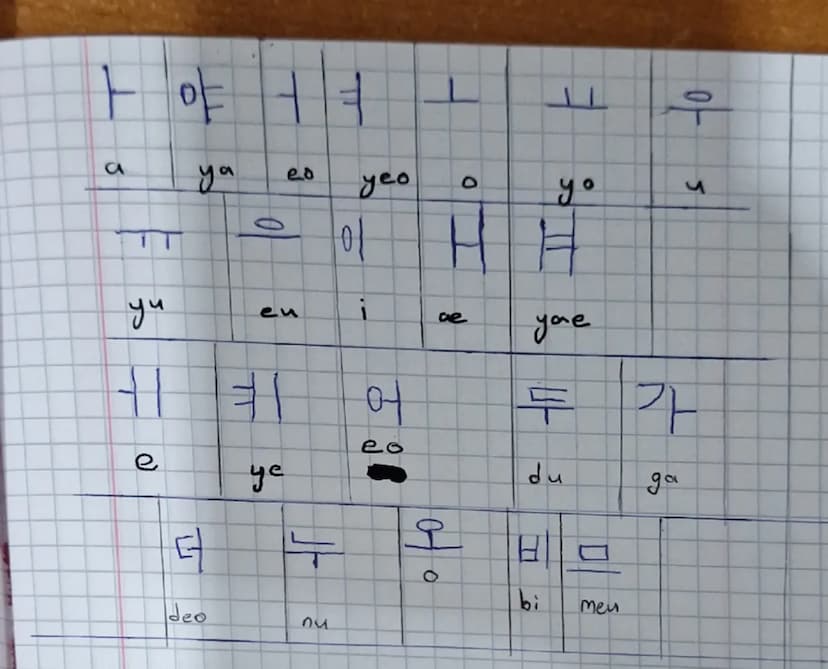 ㅏ 야 ㅓ ㅕ ㅗ ㅛ 우
a ya eo yeo o yo u
ㅠ 으 이 ㅐ ㅒ
yu eu i ae yae
ㅔ ㅖ 어 두 가
e ye eo du ga
더 누 오 비 므
deo nu o bi meu